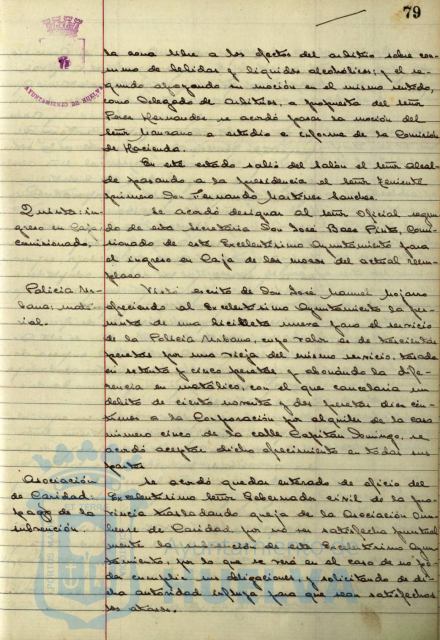 79
AYUNTAMIENTO DE HUELVA
la zona libre a los efectos del arbitrio sobre con-
sumo de bebidas y líquidos alcohólicos; y el se-
gundo apoyando su moción en el mismo sentido,
como Delegado de Arbitrios, a propuesta del señor
Perez Hernandez se acordó pasar la moción del
señor Manzano a estudio e informe de la Comisión
de Hacienda.
En este estado salió del Salón el señor Alcal-
de pasando a la presidencia el señor Teniente
primero Don Fernando Martinez Sanchez.
Quinta: in-
greso en Caja
comisionado.
Se acordó designar al señor Oficial segun-
do de esta Secretaria Don José Baes Pinto, Comi-
sionado de este Excelentísimo Ayuntamiento para
el ingreso en Caja de los mozos del actual reem-
plazo.
Policia Ur-
bana: mate-
rial.
Visto escrito de Don José Manuel Mojarro
ofreciendo al Excelentísimo Ayuntamiento la per-
muta de una bicicleta nueva para el servicio
de la Policia Urbana, cuyo valor es de trescientas
pesetas por una vieja del mismo servicio, tasada
en setenta y cinco pesetas y abonando la dife-
rencia en metálico, con el que cancelaria un
debito de ciento noventa y dos pesetas diez cén-
timos a la Corporación por alquiler de la casa
número cinco de la calle Capitan Domingo, se
acordó aceptar dicho ofrecimiento en todas sus
partes
Asociación
de Caridad:
pago de la
subvención.
Se acordó quedar enterado de oficio del
Excelentísimo señor Gobernador civil de la pro-
vincia trasladando queja de la Asociación Onu-
bense de Caridad por no ser satisfecha puntual-
mente la subvención de este Excelentísimo Ayun-
tamiento, por lo que se verá en el caso de no po-
der cumplir sus obligaciones, y solicitando de di-
cha autoridad influya para que sean satisfechos
los atrasos.